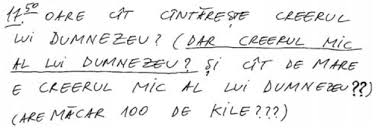 11.50 OARE CÎT CÎNTĂREȘTE CREERUL
LUI DUMNEZEU? (DAR CREERUL MIC
AL LUI DUMNEZEU? ȘI CÎT DE MARE
E CREERUL MIC AL LUI DUMNEZEU??)
(ARE MĂCAR 100 DE KILE???)